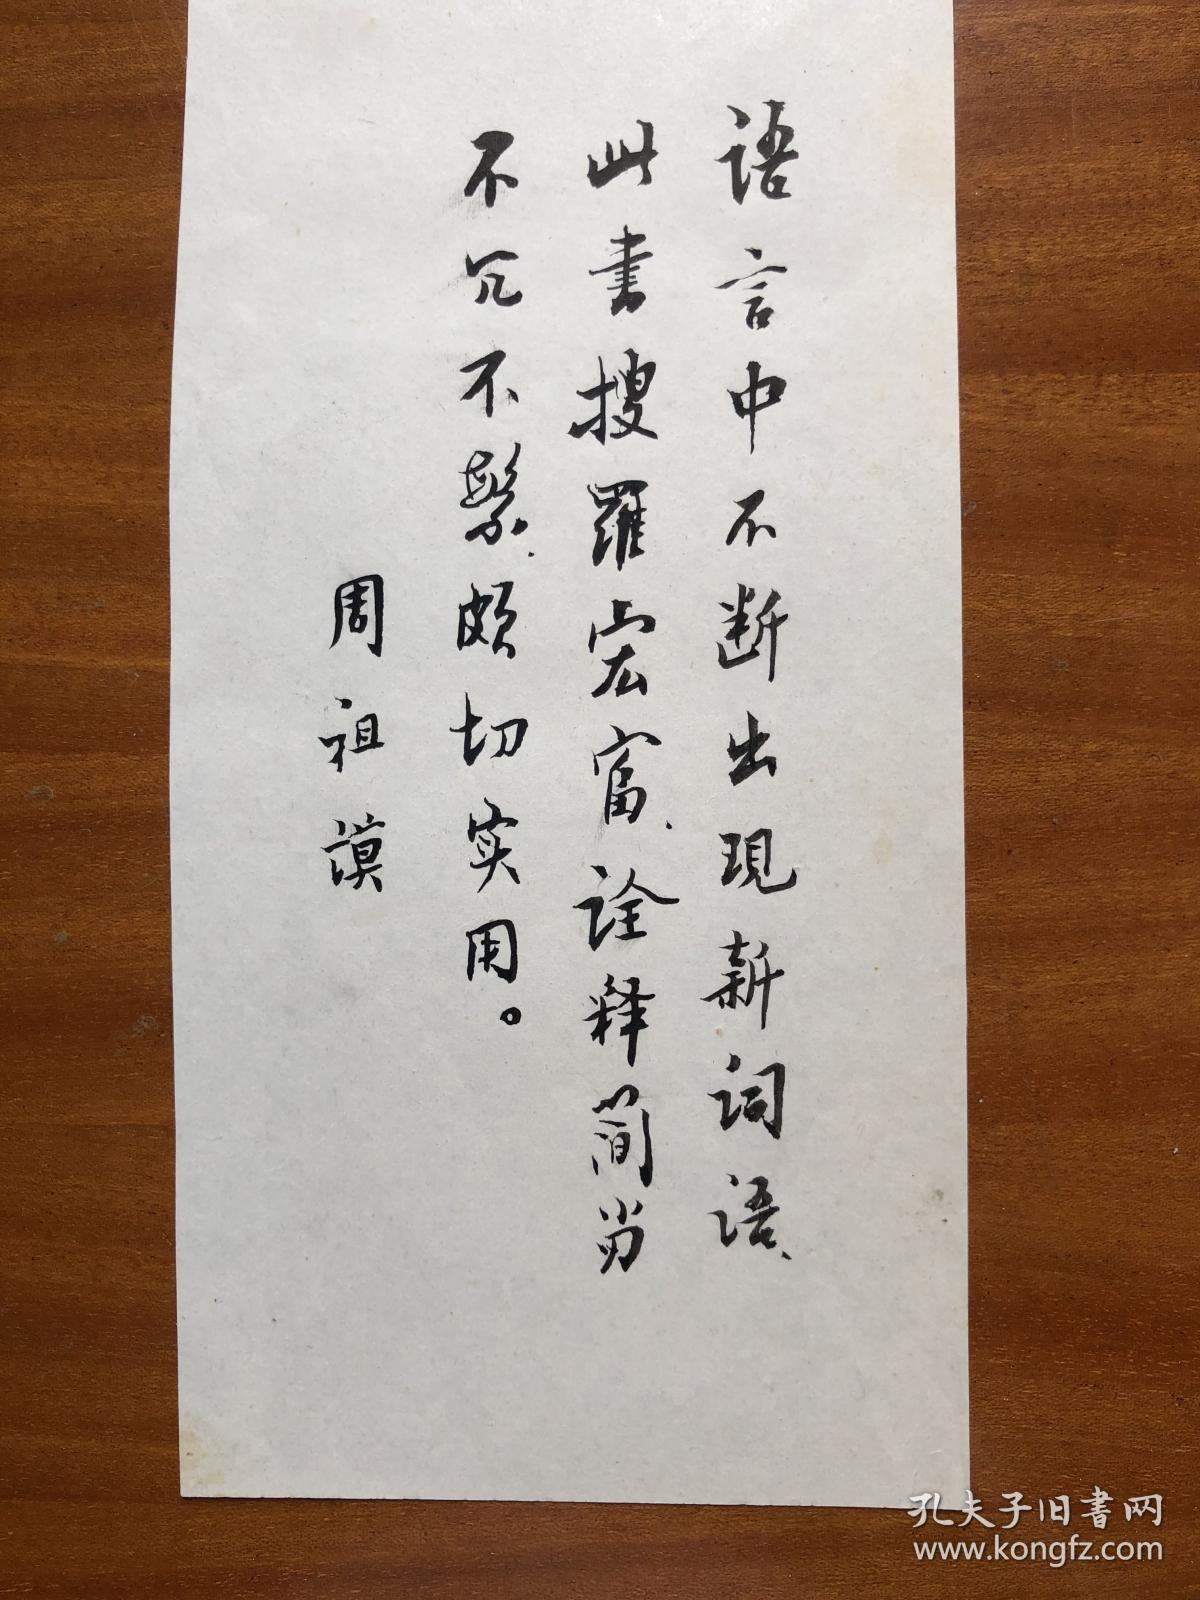 語言中不断出現新词语、
此書搜羅宏富、诠释简当
不冗不繁、颇切实用。
周祖谟
孔夫子旧書网
www.kongfz.com